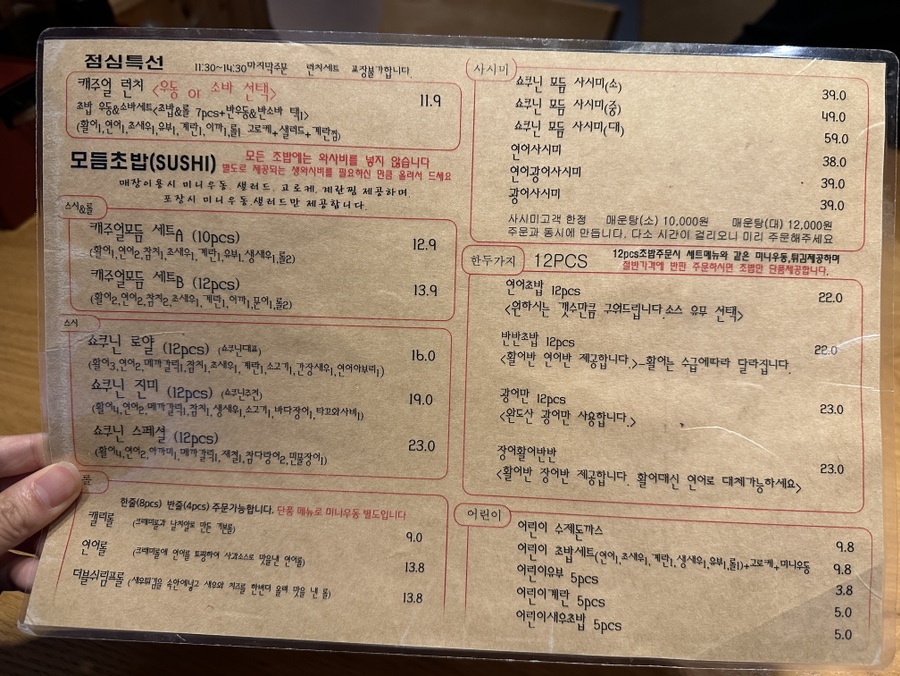 점심특선 11:30~14:30마지막주문 런치세트 포장불가합니다.
캐주얼 런치 <우동 or 소바 선택> 11.9
초밥 우동&소바세트<초밥&롤 7pcs+반우동&반소바 택1>
(활어1,연어1,초새우1,유부1,계란1,아까1,롤1 고로케+샐러드+계란찜)
모듬초밥(SUSHI) 모든 초밥에는 와사비를 넣지 않습니다
별도로 제공되는 생와사비를 필요하신 만큼 올려서 드세요
매장이용시 미니우동, 샐러드, 고로케, 계란찜 제공하며,
포장시 미니우동,샐러드만 제공합니다.
스시&롤
캐주얼모듬 세트A (10pcs) 12.9
(활어1,연어2,참치1,초새우1,계란1,유부1,생새우1,롤2)
캐주얼모듬 세트B (12pcs) 13.9
(활어2,연어2,참치2,초새우1,계란1,아까1,문어1,롤2)
스시
쇼쿠닌 로얄 (12pcs) (쇼쿠닌대표) 16.0
(활어3,연어2,메까갈릭1,참치1,초새우1,계란1,소고기1,간장새우1,연어아부리1)
쇼쿠닌 진미 (12pcs) (쇼쿠닌추천) 19.0
(활어4,연어2,메까갈릭1,참치1,생새우1,소고기1,바다장어1,타꼬와사비1)
쇼쿠닌 스페셜 (12pcs) 23.0
(활어4,연어2,아까미1,메까갈릭1,제철1,참다랑어2,민물장어1)
롤
한줄(8pcs) 반줄(4pcs) 주문가능합니다. 단품 메뉴로 미니우동 별도입니다
캘리롤 (크래미롤과 날치알로 만든 기본롤) 9.0
연어롤 (크래미롤에 연어를 토핑하여 사과소스로 맛을낸 연어롤) 13.8
더블쉬림프롤 (새우튀김을 속안에넣고 새우와 치즈를 한번더 올려 맛을 낸 롤) 13.8
사시미
쇼쿠닌 모듬 사시미(소) 39.0
쇼쿠닌 모듬 사시미(중) 49.0
쇼쿠닌 모듬 사시미(대) 59.0
연어사시미 38.0
연어광어사시미 39.0
광어사시미 39.0
사시미고객 한정 매운탕(소) 10,000원 매운탕(대) 12,000원
주문과 동시에 만듭니다. 다소 시간이 걸리오니 미리 주문해주세요
한두가지 12PCS 12pcs초밥주문시 세트메뉴와 같은 미니우동,튀김제공하며
절반가격에 반판 주문하시면 초밥만 단품제공합니다.
연어초밥 12pcs 22.0
<원하시는 갯수만큼 구워드립니다.소스 유무 선택>
반반초밥 12pcs 22.0
<활어반 연어반 제공합니다.>-활어는 수급에따라 달라집니다.
광어만 12pcs 23.0
<완도산 광어만 사용합니다.>
장어활어반반 23.0
<활어반 장어반 제공합니다. 활어대신 연어로 대체가능하세요>
어린이
어린이 수제돈까스 9.8
어린이 초밥세트(연어1,초새우1, 계란1, 생새우1,유부1,롤1)+고로케+미니우동 9.8
어린이유부 5pcs 3.8
어린이계란 5pcs 5.0
어린이새우초밥 5pcs 5.0